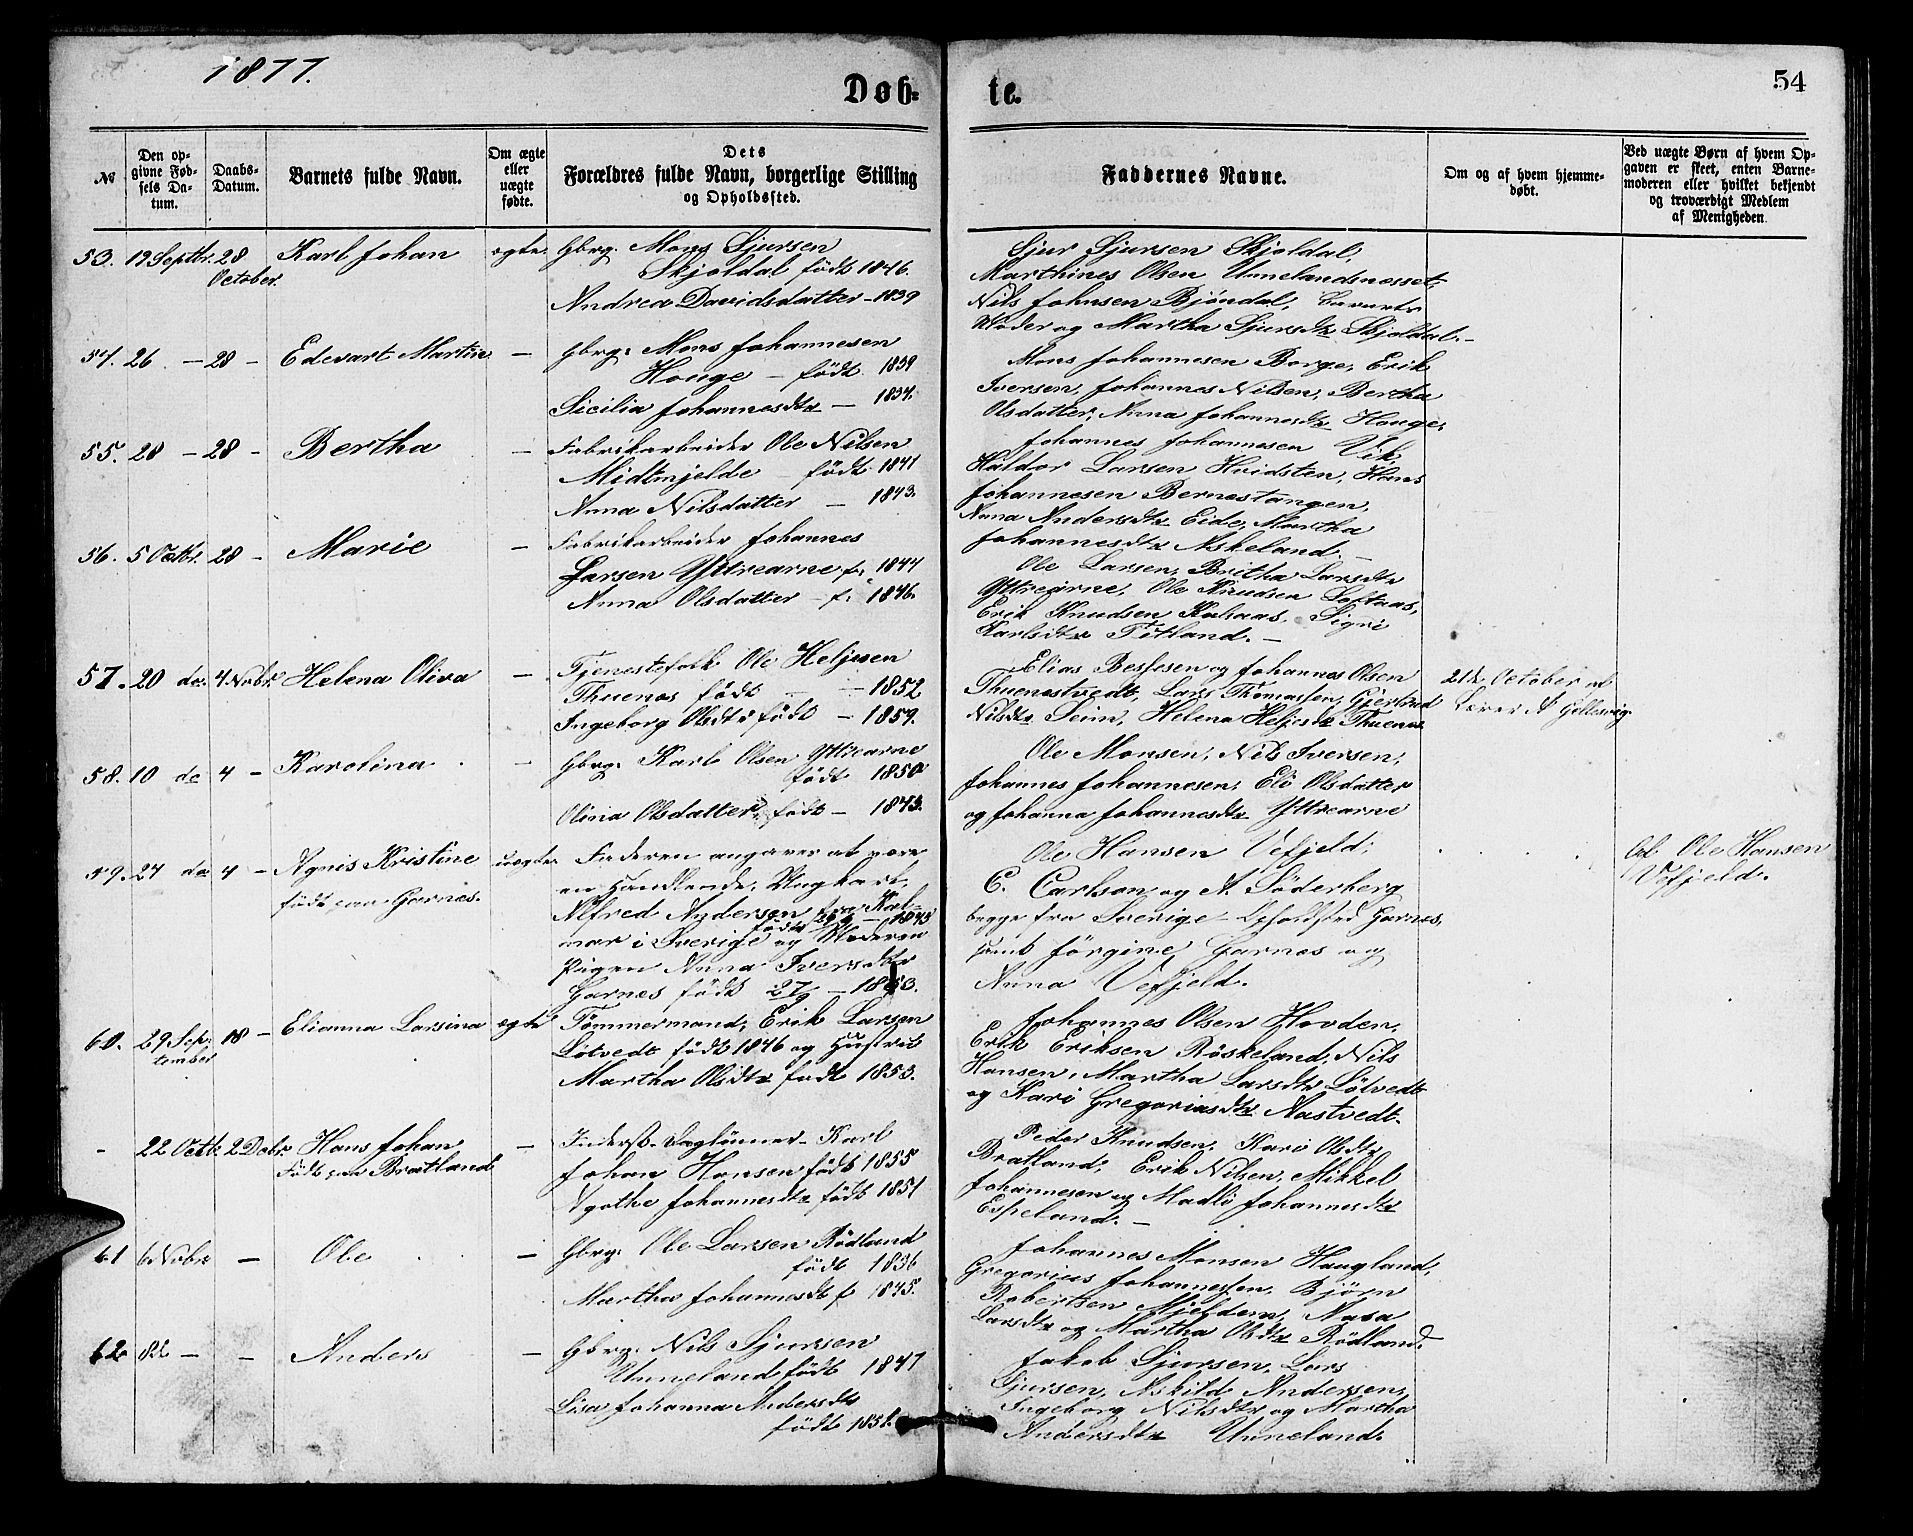 1877.
Døb-
te.
54
№
Den op-
givne Fød-
sels Da-
tum.
Daabs-
Datum.
Barnets fulde Navn.
Om ægte
eller
uægte
fødte.
Dets
Forældres fulde Navn, borgerlige Stilling
og Opholdssted.
Faddernes Navne.
Om og af hvem hjemme-
døbt.
Ved uægte Børn af hvem Op-
gaven er skeet, enten Barne-
moderen eller hvilket bekjendt
og troværdigt Medlem
af Menigheden.
53. 19 Septbr. 28 October Karl Johan ægte Gbrg. Mons Sjursen
Skjoldal født 1846.
Andrea Davidsdatter - 1839
Sjur Sjursen Skjoldal,
Marthines Olsen Unnelandsnesset,
Nils Johnsen Bjöndal, Barnets
Moder og Martha Sjursdtr Skjoldal.-
54. 26 - 28 - Edevart Martin - Gbrg: Mons Johannesen
Houge - født 1839
Sicilia Johannesdtr - 1834.
Mons Johannesen Borge, Erik
Iversen, Johannes Nilsen, Bertha
Olsdatter, Anna Johannesdtr Houge,
55. 28 - 28 - Bertha - Fabrikarbeider Ole Nilsen
Midtmjelde - født 1841
Anna Nilsdatter - 1843.
Johannes Johannesen Vik,
Haldor Larsen Hvidsten, Hans
Johannesen Bernestangen,
Anna Andersdtr Eide, Martha
Johannesdtr Askeland. -
56. 5 Octbr. 28 - Marie - Fabrikarbeider Johannes
Larsen Yttrearne f. 1844
Anna Olsdatter - f. 1846.
Ole Larsen, Britha Larsdtr
Yttrearne, Ole Knudsen Loftaas,
Erik Knudsen Kahaas. Sigri
Karlsdtr Titland. -
57. 20 do. 4 Nvbr. Helena Oliva - Tjenestefolk Ole Heljesen
Thuenes født - - 1852
Ingeborg Olsdtr født - 1859.
Elias Bessesen og Johannes Olsen
Thuenestvedt, Lars Thomassen, Gjertrud
Nilsdtr Seim, Helena Heljesdtr Thuenes
21de October af
Lærer A Gellesvig.
58. 10 do 4 - Karolina - Gbrg. Karl Olsen Yttrearne
født 1850
Olina Olsdatter, født - 1843.
Ole Monsen, Nils Iversen,
Johannes Johannesen, Eli Olsdatter
og Johanna Johannesdtr Yttrearne
59. 24 do 4 - Agnis Kristine uægte Faderen angaves at være
født paa Garnes.
en Handlende, Ungkarl,
Alfred Andersen fra Kal-
født - 1845
mar i Sverige og Moderen
Pigen Anna Iversdtr
Garnes født 27/9 - 1853.
Ole Hansen Vefjeld,
C. Carlson og A. Söderberg
begge fra Sverige Opholdsted Garnes,
samt Jörgine Garnes og
Anna Vefjeld.
Ole Hansen
Vefjeld.
60. 29 Sep- 18 - Elianna Larsina ægte Tömmermand, Erik Larsen
tember
Lötvedt født 1846 og Hustru
Martha Olsdtr født 1853.
Johannes Olsen Hovden,
Erik Eriksen Röskeland, Nils
Hansen, Martha Larsdtr Lötvedt
og Kari Gregoriusdtr Nastvedt.
- 22 Octbr 2 Decbr. Hans Johan - Inderst. Daglönner Karl
Født paa Bratland
Johan Hansen født 1855
Agothe Johannesdtr født 1851
Peder Knudsen, Kari Olsdtr
Bratland, Erik Nilsen, Mikkel
Johannesen og Madli Johannesdtr
Espeland. -
61 6 Nvbr - Ole - Gbrg: Ole Larsen Rödland
født 1836
Martha Johannesdtr f 1845.
Johannes Monsen Haugland,
Gregorius Johannessen, Bjørn
Robertsen Mjeldene, Aasa
Larsdtr og Martha Olsdtr Rödland.
62 - - Anders - Gbrg: Nils Sjursen
Unneland født 1847
Lisa Johanna Andersdtr
født 1851.
Jakob Sjursen, Lars
Sjursen, Askild Andersen,
Ingeborg Nilsdtr og Martha
Andersdtr Unneland.